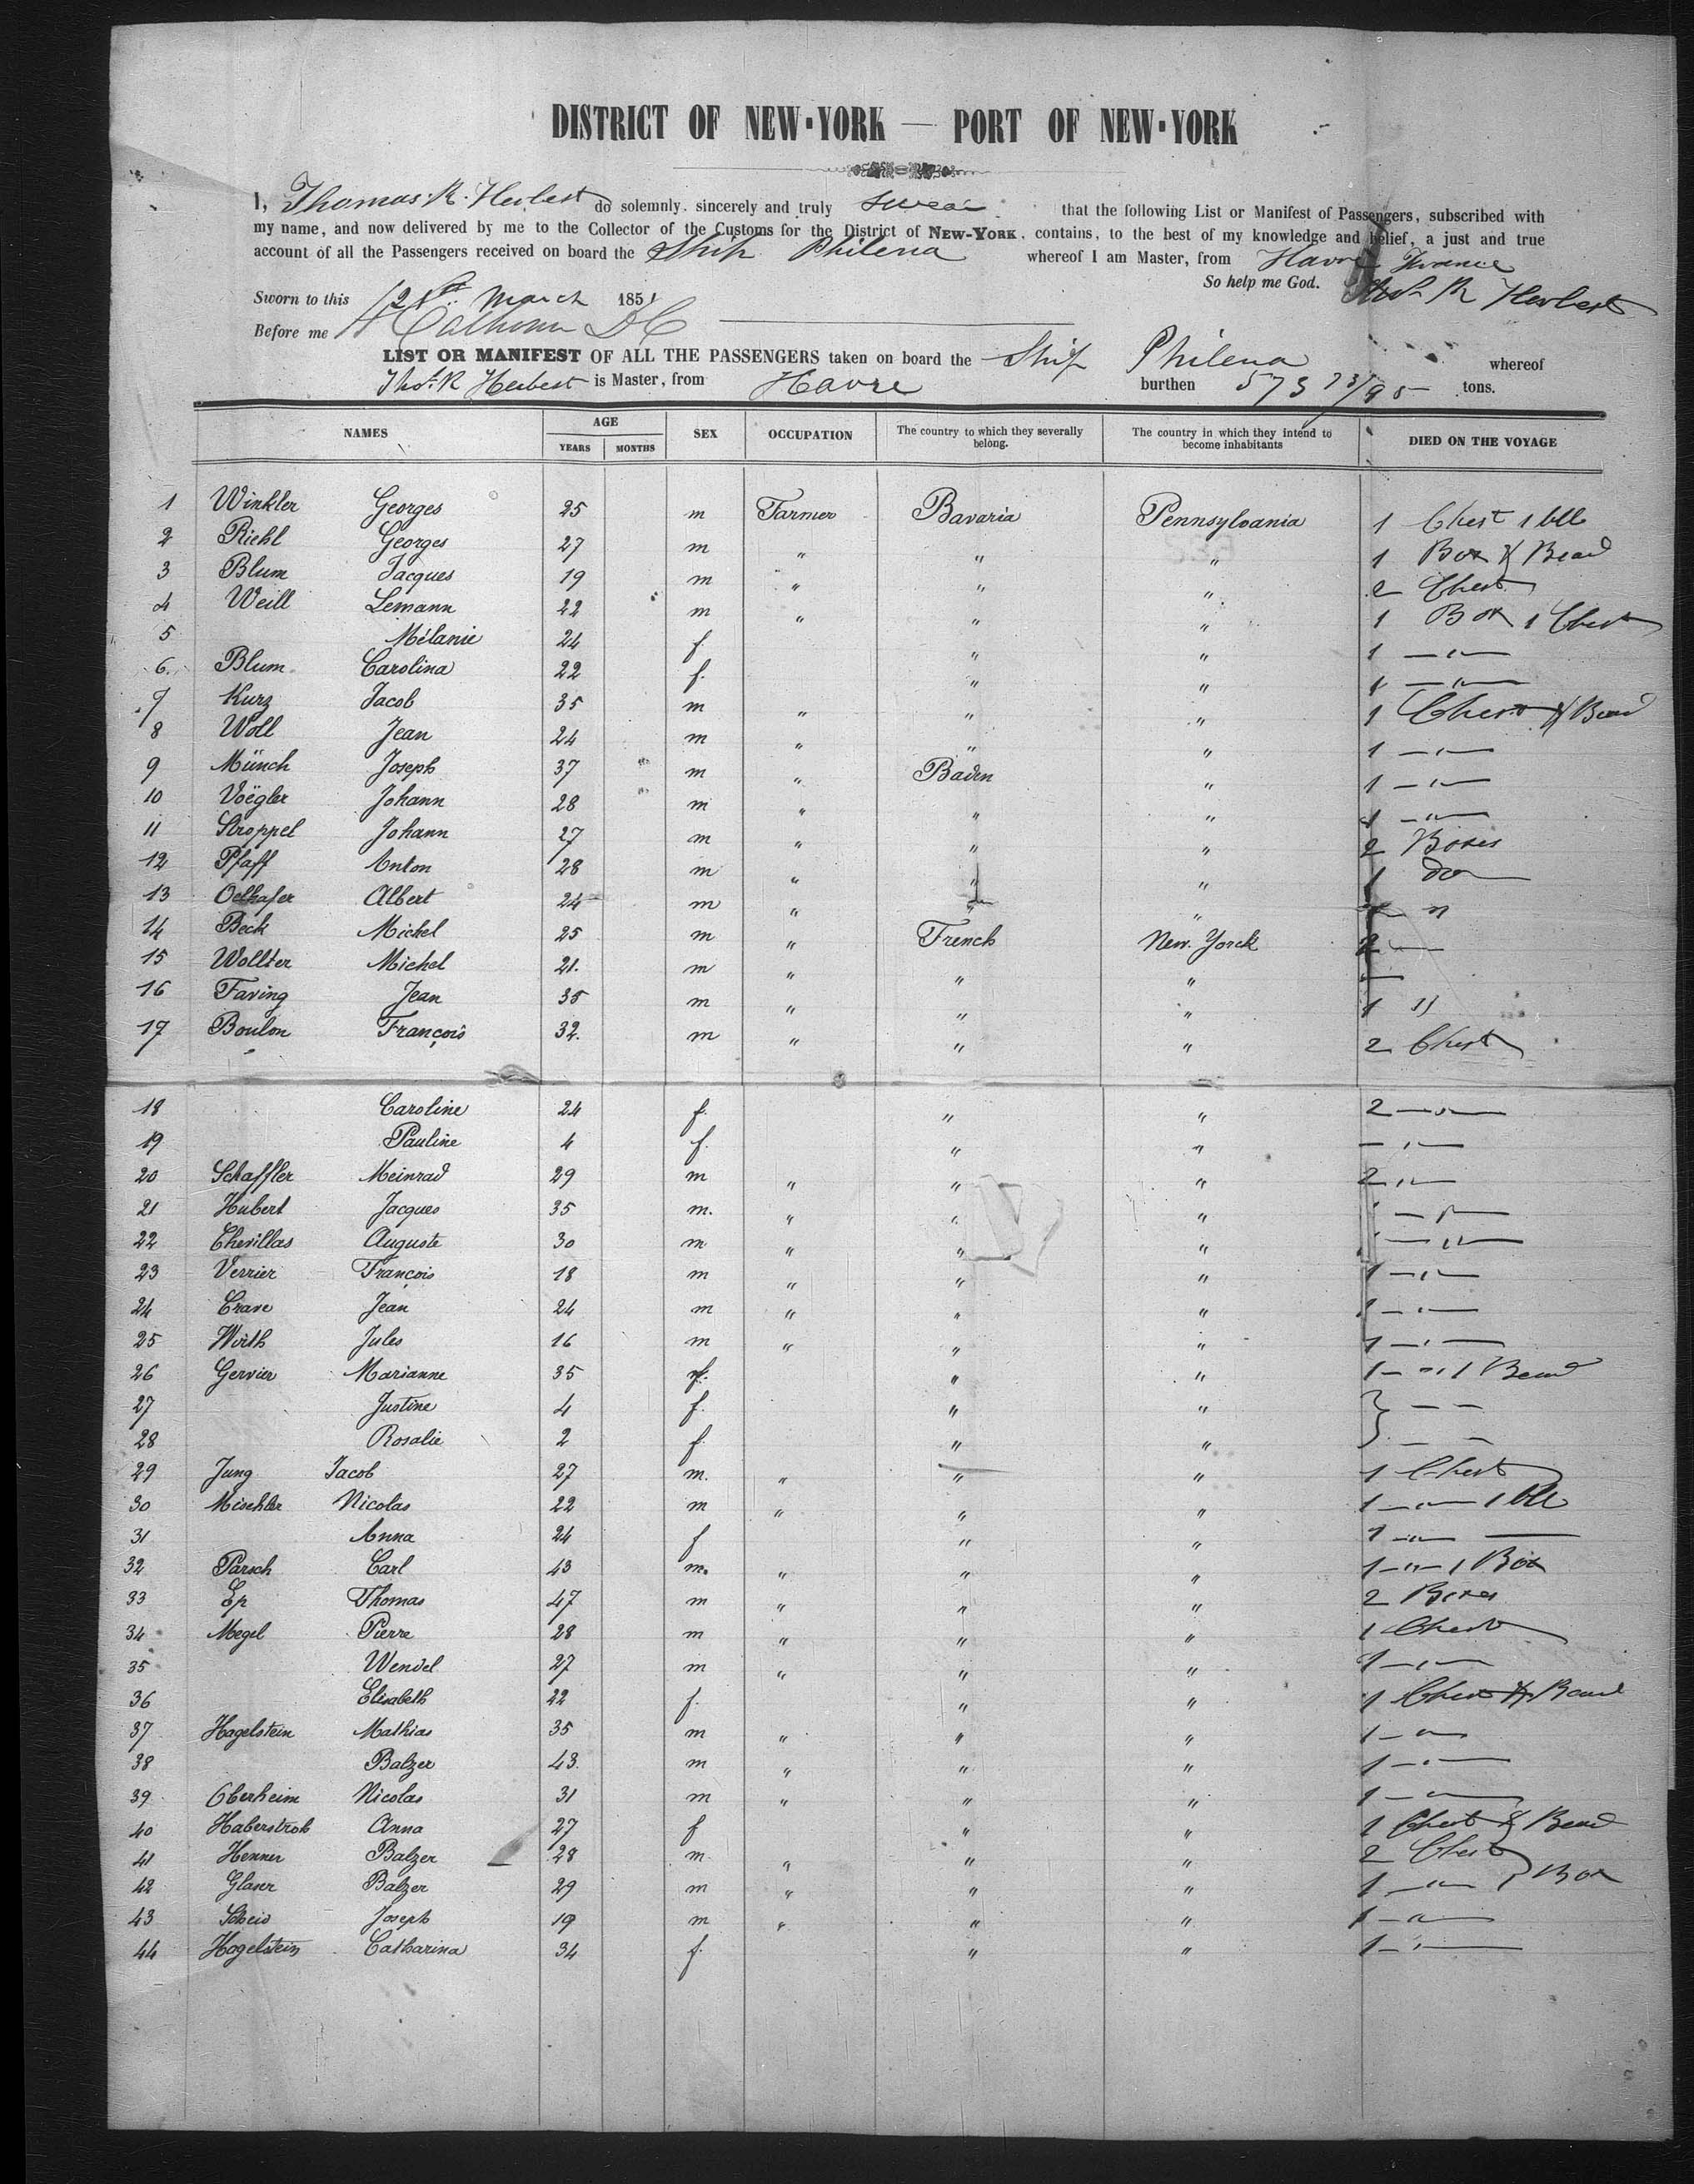 DISTRICT OF NEW-YORK — PORT OF NEW-YORK
I, Thomas R. Herbest do solemnly, sincerely and truly swear that the following List or Manifest of Passengers, subscribed with
my name, and now delivered by me to the Collector of the Customs for the District of NEW-YORK, contains, to the best of my knowledge and belief, a just and true
account of all the Passengers received on board the Ship Philena whereof I am Master, from Havre France
So help me God. Thos R Herbest
Sworn to this March 1851
Before me Calhoun DC
LIST OR MANIFEST OF ALL THE PASSENGERS taken on board the Ship Philena whereof
Thos. R Herbest is Master, from Havre burthen 573 73/95 tons.
NAMES AGE YEARS MONTHS SEX OCCUPATION The country to which they severally belong. The country in which they intend to become inhabitants DIED ON THE VOYAGE
1 Winkler Georges 25 m Farmer Bavaria Pennsylvania 1 Chest 1 bll
2 Riehl Georges 27 m " " " 1 Box & Bead
3 Blum Jacques 19 m " " " 2 Chest
4 Weill Lemann 22 m " " " 1 Box 1 Chest
5 Mélanie 24 f. " " 1 — " —
6. Blum Carolina 22 f. " " 1 — " —
7 Kurz Jacob 35 m " " " 1 Chest & Bead
8 Woll Jean 24 m " " " 1 — " —
9 Münch Joseph 37 m " Baden " 1 — " —
10 Voëgler Johann 28 m " " " 1 — " —
11 Stroppel Johann 27 m " " " 2 Boxes
12 Pfaff Anton 28 m " " " 1 do
13 Oelhafer Albert 24 m " " " "
14 Beck Michel 25 m " French New-Yorck 2 —
15 Wollter Michel 21. m " " " —
16 Faving Jean 35 m " " " 1 "
17 Boulon François 32. m " " " 2 Chest
18 Caroline 24 f. " " 2 — " —
19 Pauline 4 f. " " — " —
20 Schaffler Meinrad 29 m " " " 2 " —
21 Hubert Jacques 35 m. " " " 1 — " —
22 Chevillas Auguste 30 m " " " 1 — " —
23 Verrier François 18 m " " " 1 — " —
24 Crave Jean 24 m " " " 1 — " —
25 Wirth Jules 16 m " " " 1 — " —
26 Gervier Marianne 35 f. " " 1 — " 1 Bead
27 Justine 4 f. " " — —
28 Rosalie 2 f. " " — —
29 Jung Jacob 27 m. " " " 1 Chest
30 Mischler Nicolas 22 m " " " 1 — " — 1 bll
31 Anna 24 f " " 1 — " —
32 Parsch Carl 43 m. " " " 1 — " — 1 Box
33 Ep Thomas 47 m " " " 2 Boxes
34 Megel Pierre 28 m " " " 1 Chest
35 Wendel 27 m " " " 1 — " —
36 Elisabeth 22 f. " " 1 Chest & Bead
37 Hagelstein Mathias 35 m " " " 1 — "
38 Balzer 43. m " " " 1 — " —
39 Oberheim Nicolas 31 m " " " 1 — " —
40 Haberstroh Anna 27 f " " 1 Chest & Bead
41 Henner Balzer 28 m " " " 2 Chest
42 Glaser Balzer 29 m " " " 1 — " — 1 Box
43 Scheid Joseph 19 m " " " 1 — " —
44 Hagelstein Catharina 34 f. " " 1 — " —